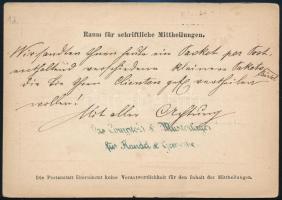 Raum für schriftliche Mittheilungen.
Wir sandten Ihnen heute ein Packet per Post
enthaltend verschiedene kleinere Pakete
die Sie Ihren Clienten gefl. vertheilen
wollen!
Mit aller Achtung
Das Comptoir & Musterlager
für Handel & Gewerbe
Die Postanstalt übernimmt keine Verantwortlichkeit für den Inhalt der Mittheilungen.